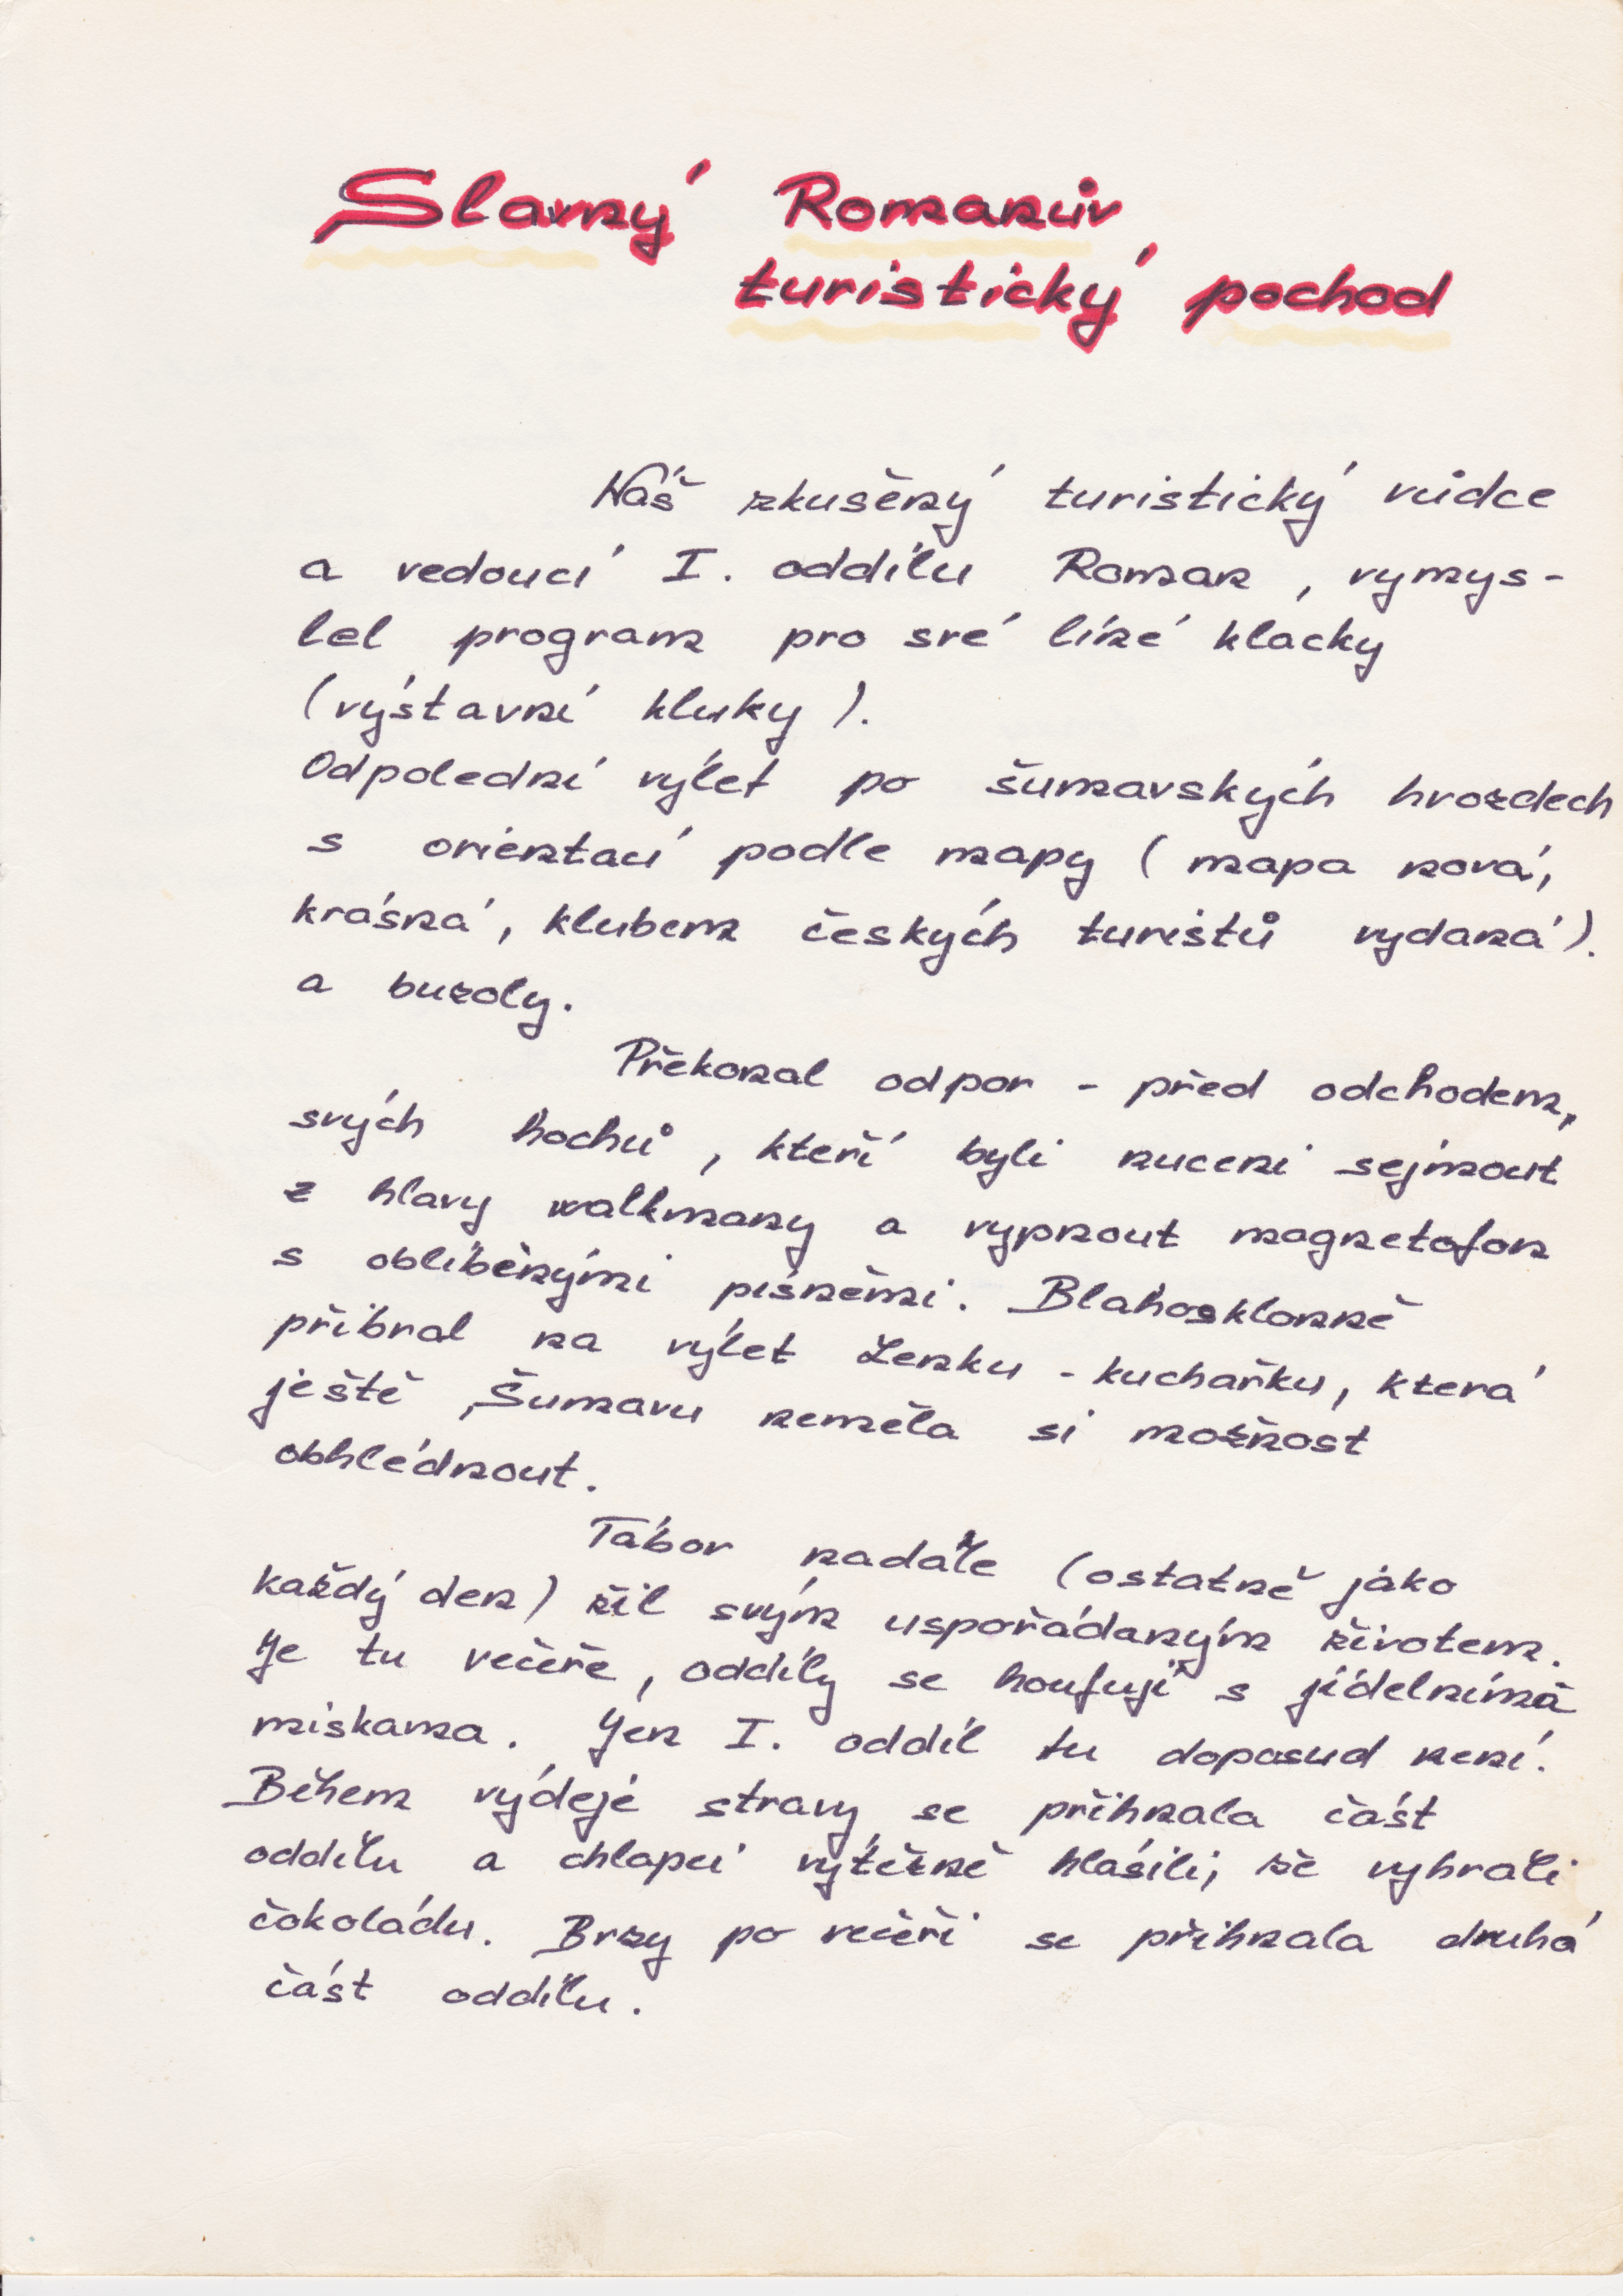 Slavný Romanův
turistický pochod
Náš zkušený turistický vůdce
a vedoucí I. oddílu Roman, vymys-
lel program pro své líné klacky
(výstavní kluky).
Odpolední výlet po šumavských hvozdech
s orientací podle mapy (mapa nová,
krásná, klubem českých turistů vydaná).
a buzoly.
Překonal odpor - před odchodem,
svých hochů, kteří byli nuceni sejmout
z hlavy walkmany a vypnout magnetofon
s oblíbenými písněmi. Blahosklonně
přibral na výlet Lenku - kuchařku, která
ještě Šumavu neměla si možnost
obhlédnout.
Tábor nadále (ostatně jako
každý den) žil svým uspořádaným životem.
Je tu večeře, oddíly se houfují s jídelníma
miskama. Jen I. oddíl tu doposud není.
Během výdeje stravy se přihnala část
oddílu a chlapci vítězně hlásili, že vyhráli
čokoládu. Brzy po večeři se přihnala druhá
část oddílu.